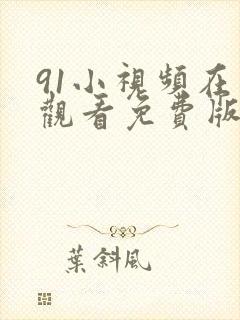 91小視頻在
觀看免費版
葉斜風